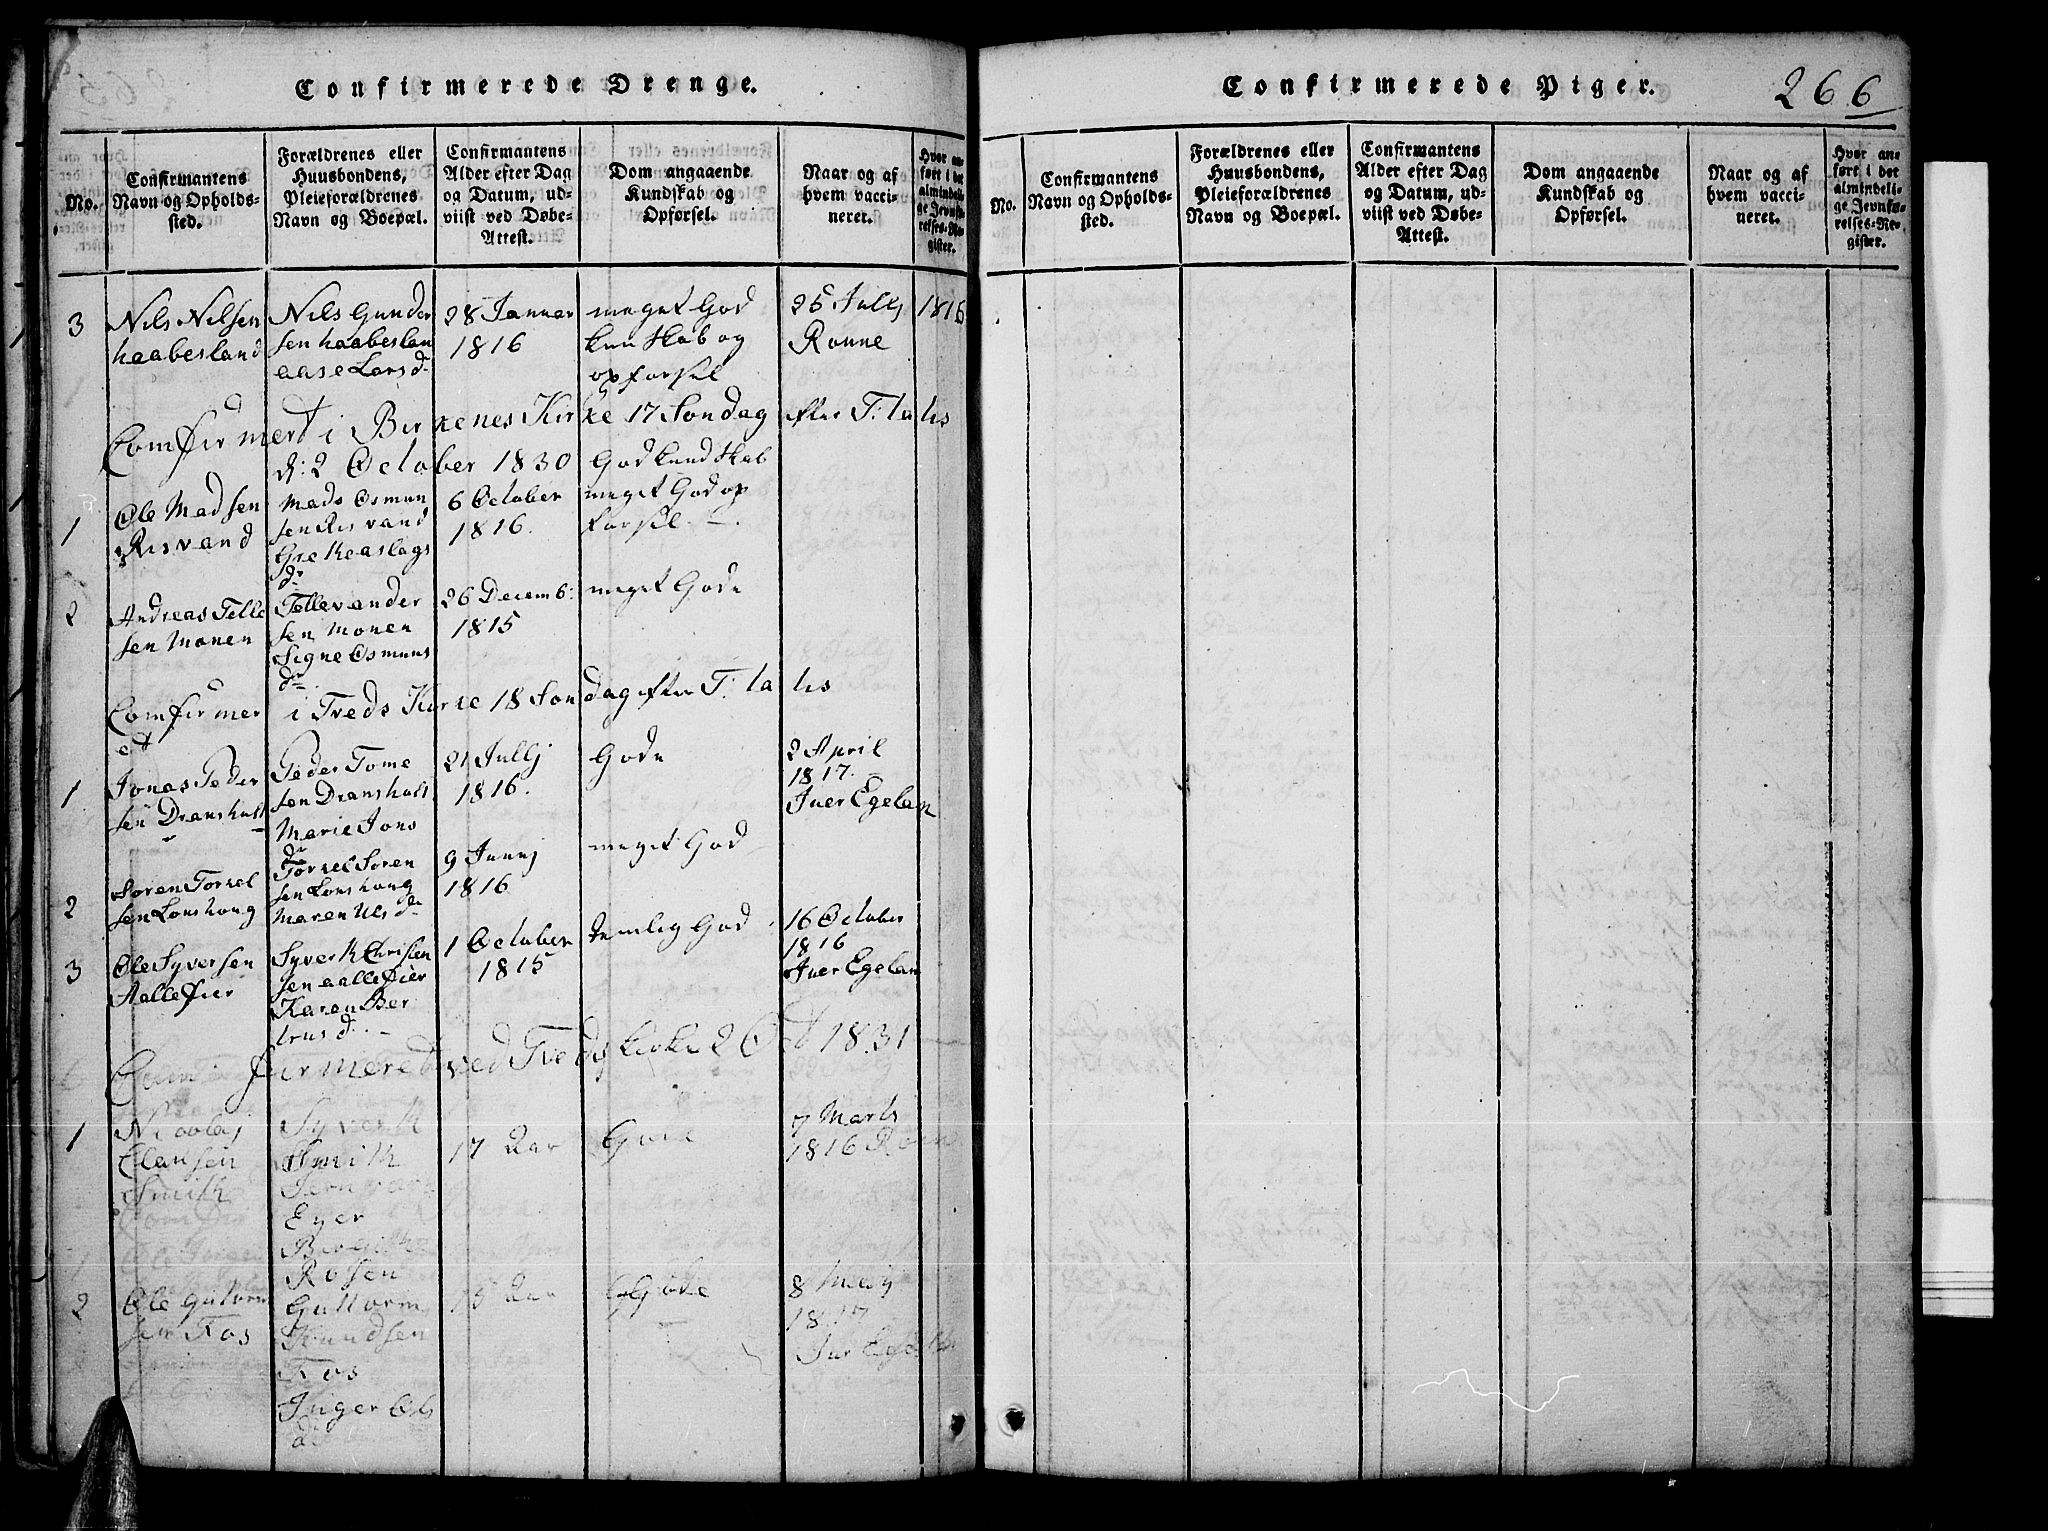 Confirmerede Drenge.
No.
Confirmantens
Navn og Opholds-
sted.
Forældrenes eller
Huusbondens,
Pleieforældrenes
Navn og Boepæl.
Confirmantens
Alder efter Dag
og Datum, ud-
viist ved Døbe-
Attest.
Dom angaaende
Kundskab og
Opførsel.
Naar og af
hvem vacci-
neret.
Hvor an-
ført i det
almindeli-
ge Jevnfø-
relses-Re-
gister.
3
Nils Nilsen
haabesland
Nils Gunder
sen haabeslan
aase Larsd
28 Januar
1816
meget God
kunskab og
opforsel
25 Julij 1816
Ronne
Comfirmert i Birkenes Kirke 17 Sondag efter T:
d: 2 October 1830
1
Ole Madsen
Risvand
Mads Osmun
sen Risvand
Gre the aslags
dr
6 October
1816.
God kundskab
meget God op
forsel.
2
Andreas Telle
sen Monen
Tellev ander
sen Monen
Signe Osmuns
dr
26 Decemb:
1815
meget Gode
Comfirmer i Tveds Kirke 18 Sondag efter T:
et
1
Jonas Peder
sen Dransholt
Peder Tome
sen Dransholt
Marie Jons
dr
21 Julij
1816.
Gode
2 April
1817.
Iver Egelan
2
Soren Torkel
sen Lonshoug
Torkel Soren
sen Lonshoug
Maren Ulsdr
9 Junij
1816
meget God
3
Ole Syversen
Aallefier
Syvert Christen
sen aallefier
Karen Ber
trus d
1 October
1815
temlig God
16 October
1816
Iver Egelan
Comfirmeret ved Tveds kirke 2 Oct 1831
1
Nicolaj
Clausen
Smith
Syvert
Smith
Eyer
Birgithe
Rosen
17 Aar
Gode
7 Marts
1816 Ron
2
Ole Gutorm
sen Fos
Guttorm
Knudsen
Fos
Inger Ols
d
15 Aar
Gode
8 Maij
1817
Confirmerede Piger.
266
No.
Confirmantens
Navn og Opholds-
sted.
Forældrenes eller
Huusbondens,
Pleieforældrenes
Navn og Boepæl.
Confirmantens
Alder efter Dag
og Datum, ud-
viist ved Døbe-
Attest.
Dom angaaende
Kundskab og
Opførsel.
Naar og af
hvem vacci-
neret.
Hvor an-
ført i det
almindeli-
ge Jevnfø-
relses-Re-
gister.